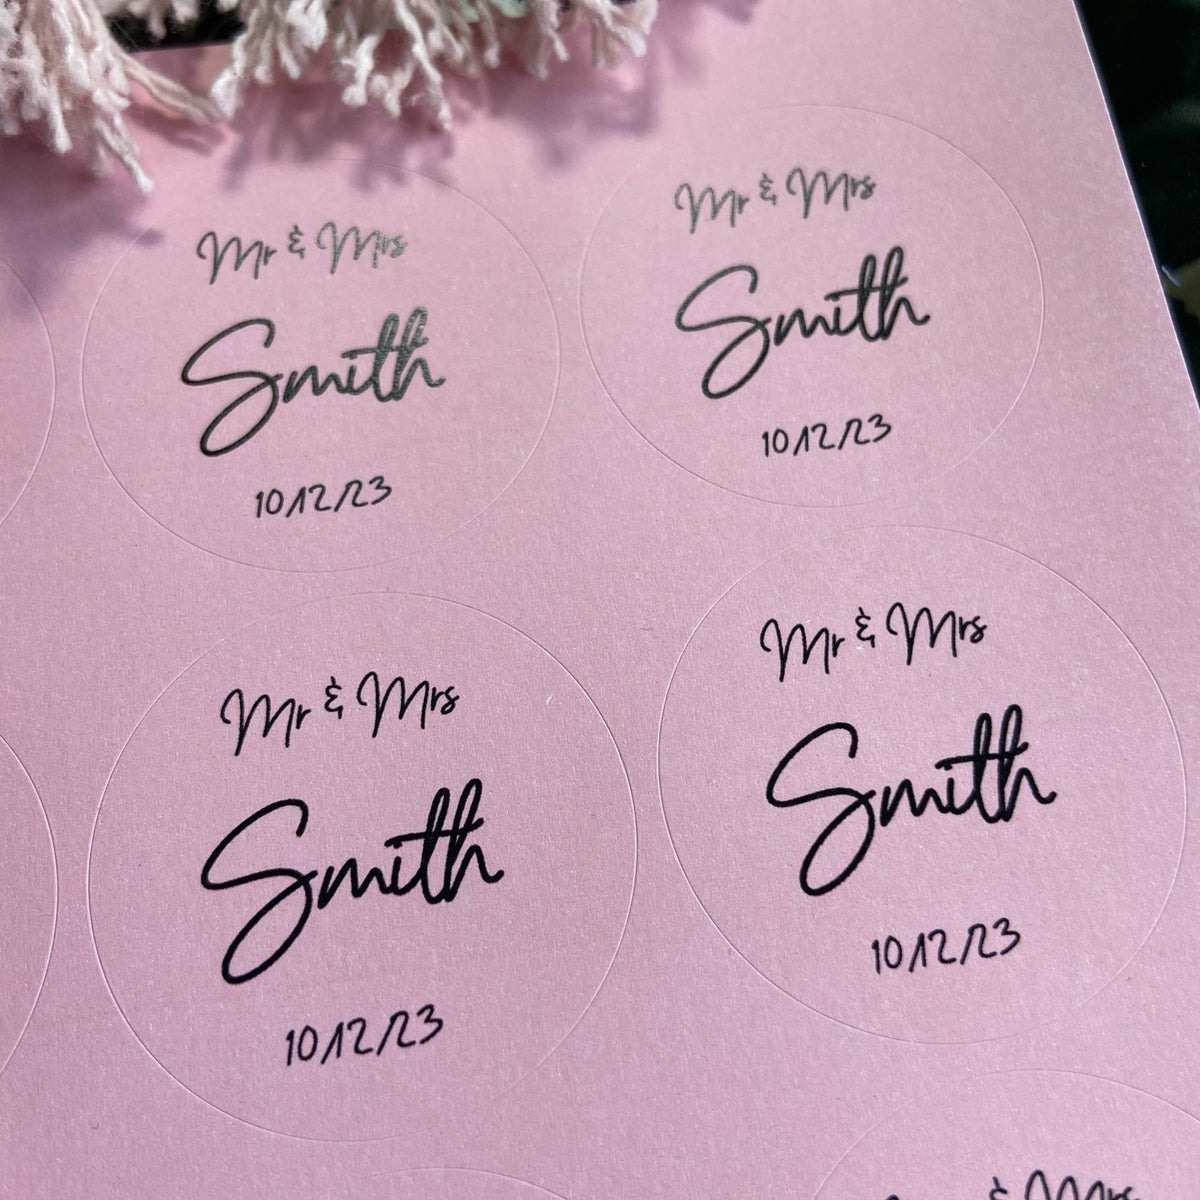 Mr & Mrs
Smith
10/12/23
Mr & Mrs
Smith
10/12/23
Mr & Mrs
Smith
10/12/23
Mr & Mrs
Smith
10/12/23
& Mrs